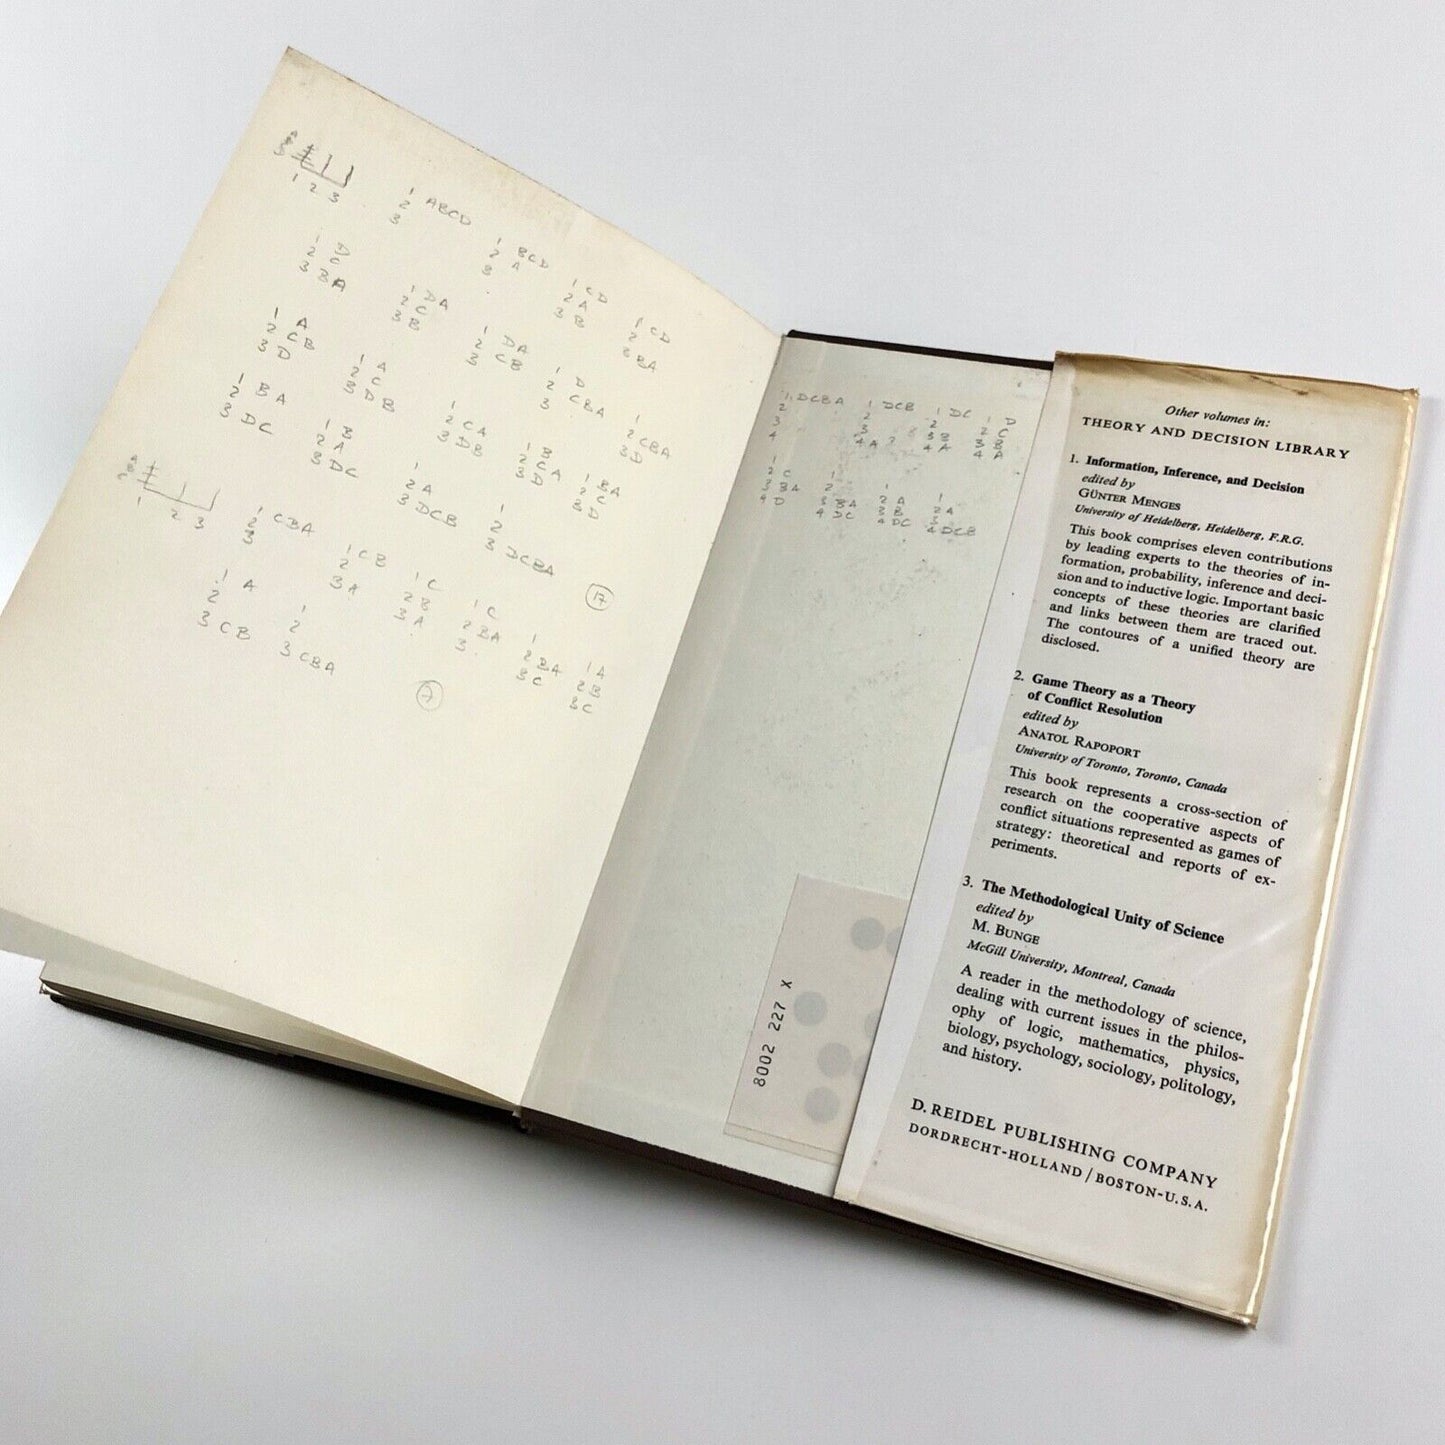 1 2 3
1
2 ABCD
3
1
2 BCD
3 A
1 CD
2 A
3 B
1 CD
2
3 BA
1 D
2 C
3 BA
1 DA
2 C
3 B
1 DA
2
3 CB
1 D
2 CBA
3
1
2 CBA
3 D
1 A
2 CB
3 D
1 A
2 C
3 DB
1
2 CA
3 DB
1 B
2 CA
3 D
1 BA
2 C
3 D
1 BA
2
3 DC
1 B
2 A
3 DC
1
2 A
3 DCB
1
2
3 DCBA
17
1 2 3
1 CBA
2
3
1 CB
2
3 A
1 C
2 B
3 A
1 C
2 BA
3
1
2 BA
3 C
1 A
2 B
3 C
1 A
2
3 CB
1
2
3 CBA
1 DCBA
2
3
4
1 DCB
2
3
4 A
1 DC
2
3 BA
4 A
1 D
2 C
3 B
4 A
1
2 C
3 BA
4 D
1
2
3 BA
4 DC
1
2 A
3 B
4 DC
1
2 A
3
4 DCB
8002 227 X
Other volumes in:
THEORY AND DECISION LIBRARY
1. Information, Inference, and Decision
edited by
GÜNTER MENGES
University of Heidelberg, Heidelberg, F.R.G.
This book comprises eleven contributions
by leading experts to the theories of in-
formation, probability, inference and deci-
sion and to inductive logic. Important basic
concepts of these theories are clarified
and links between them are traced out.
The contoures of a unified theory are
disclosed.
2. Game Theory as a Theory
of Conflict Resolution
edited by
ANATOL RAPOPORT
University of Toronto, Toronto, Canada
This book represents a cross-section of
research on the cooperative aspects of
conflict situations represented as games of
strategy: theoretical and reports of ex-
periments.
3. The Methodological Unity of Science
edited by
M. BUNGE
McGill University, Montreal, Canada
A reader in the methodology of science,
dealing with current issues in the philos-
ophy of logic, mathematics, physics,
biology, psychology, sociology, politology,
and history.
D. REIDEL PUBLISHING COMPANY
DORDRECHT-HOLLAND / BOSTON-U.S.A.